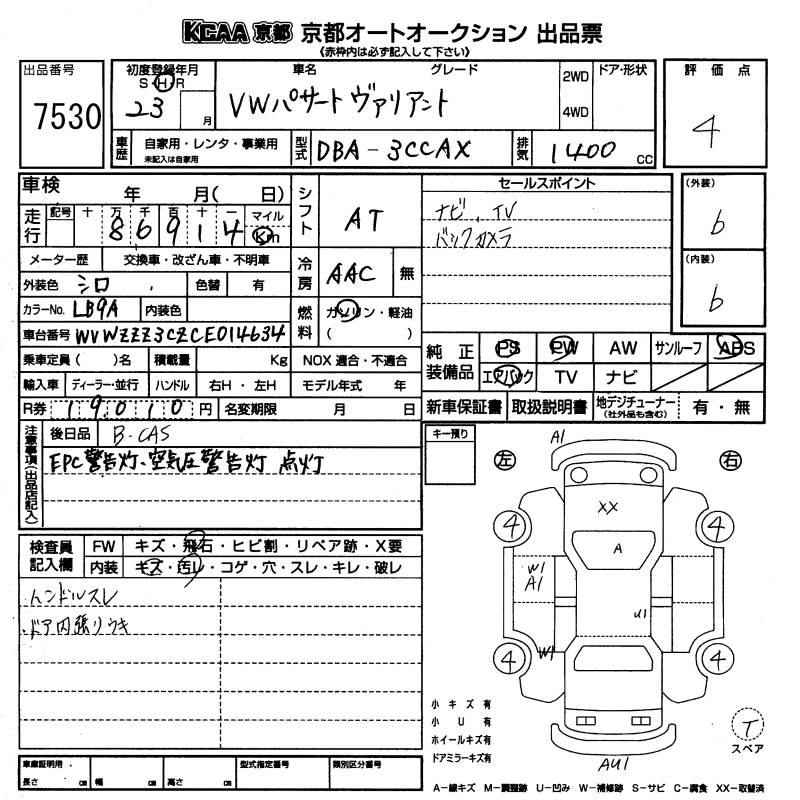 KCAA 京都 京都オートオークション 出品票
《赤枠内は必ず記入して下さい》
出品番号
7530
初度登録年月
S・H・R
23 月
車名 グレード
VWパサートヴァリアント
2WD
4WD
ドア・形状
評価点
4
車歴
自家用・レンタ・事業用
未記入は自家用
型式 DBA-3CCAX
排気 1400 CC
車検 年 月( 日)
走行 記号 十 万 千 百 十 一 マイル
8 6 9 1 4 Km
シフト AT
セールスポイント
ナビ、TV
バックカメラ
(外装)
6
(内装)
6
メーター歴 交換車・改ざん車・不明車
外装色 シロ 色替 有
冷房 AAC 無
カラーNo. LB9A 内装色
燃料 ガソリン・軽油
( )
車台番号 WVWZZZ3CZCE014634
乗車定員( )名 積載量 Kg NOX 適合・不適合
輸入車 ディーラー・並行 ハンドル 右H・左H モデル年式 年
R券 19010円 名変期限 月 日
純正装備品 PS PW AW サンルーフ ABS
エアバック TV ナビ
新車保証書 取扱説明書 地デジチューナー(社外品も含む) 有・無
注意事項(出品店記入)
後日品 B-CAS
EPC警告灯、空気圧警告灯 点灯
キー預り
検査員記入欄
FW キズ・飛石・ヒビ割・リペア跡・X要
内装 キズ・汚レ・コゲ・穴・スレ・キレ・破レ
ハンドルスレ
ドア内張リウキ
A1
左 右
XX
4 4
A
W1
A1
U1
4 W1 4
小キズ有
小U有
ホイールキズ有
ドアミラーキズ有
AU1
T
スペア
車庫証明用
長さ cm 幅 cm 高さ cm
型式指定番号 類別区分番号
A-線キズ M-調整跡 U-凹み W-補修跡 S-サビ C-腐食 XX-取替済